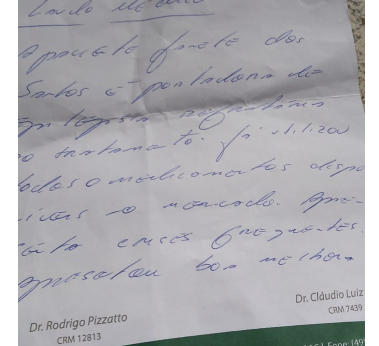 Laudo médico
A paciente Janete dos
Santos é portadora de
Epilepsia refratária
ao tratamento. Já utilizou
todos o medicamentos dispo
níveis no mercado. Apre-
senta crises frequentes.
apresetou boa melhora
Dr. Rodrigo Pizzatto
CRM 12813
Dr. Cláudio Luiz
CRM 7439
Fone: (49)